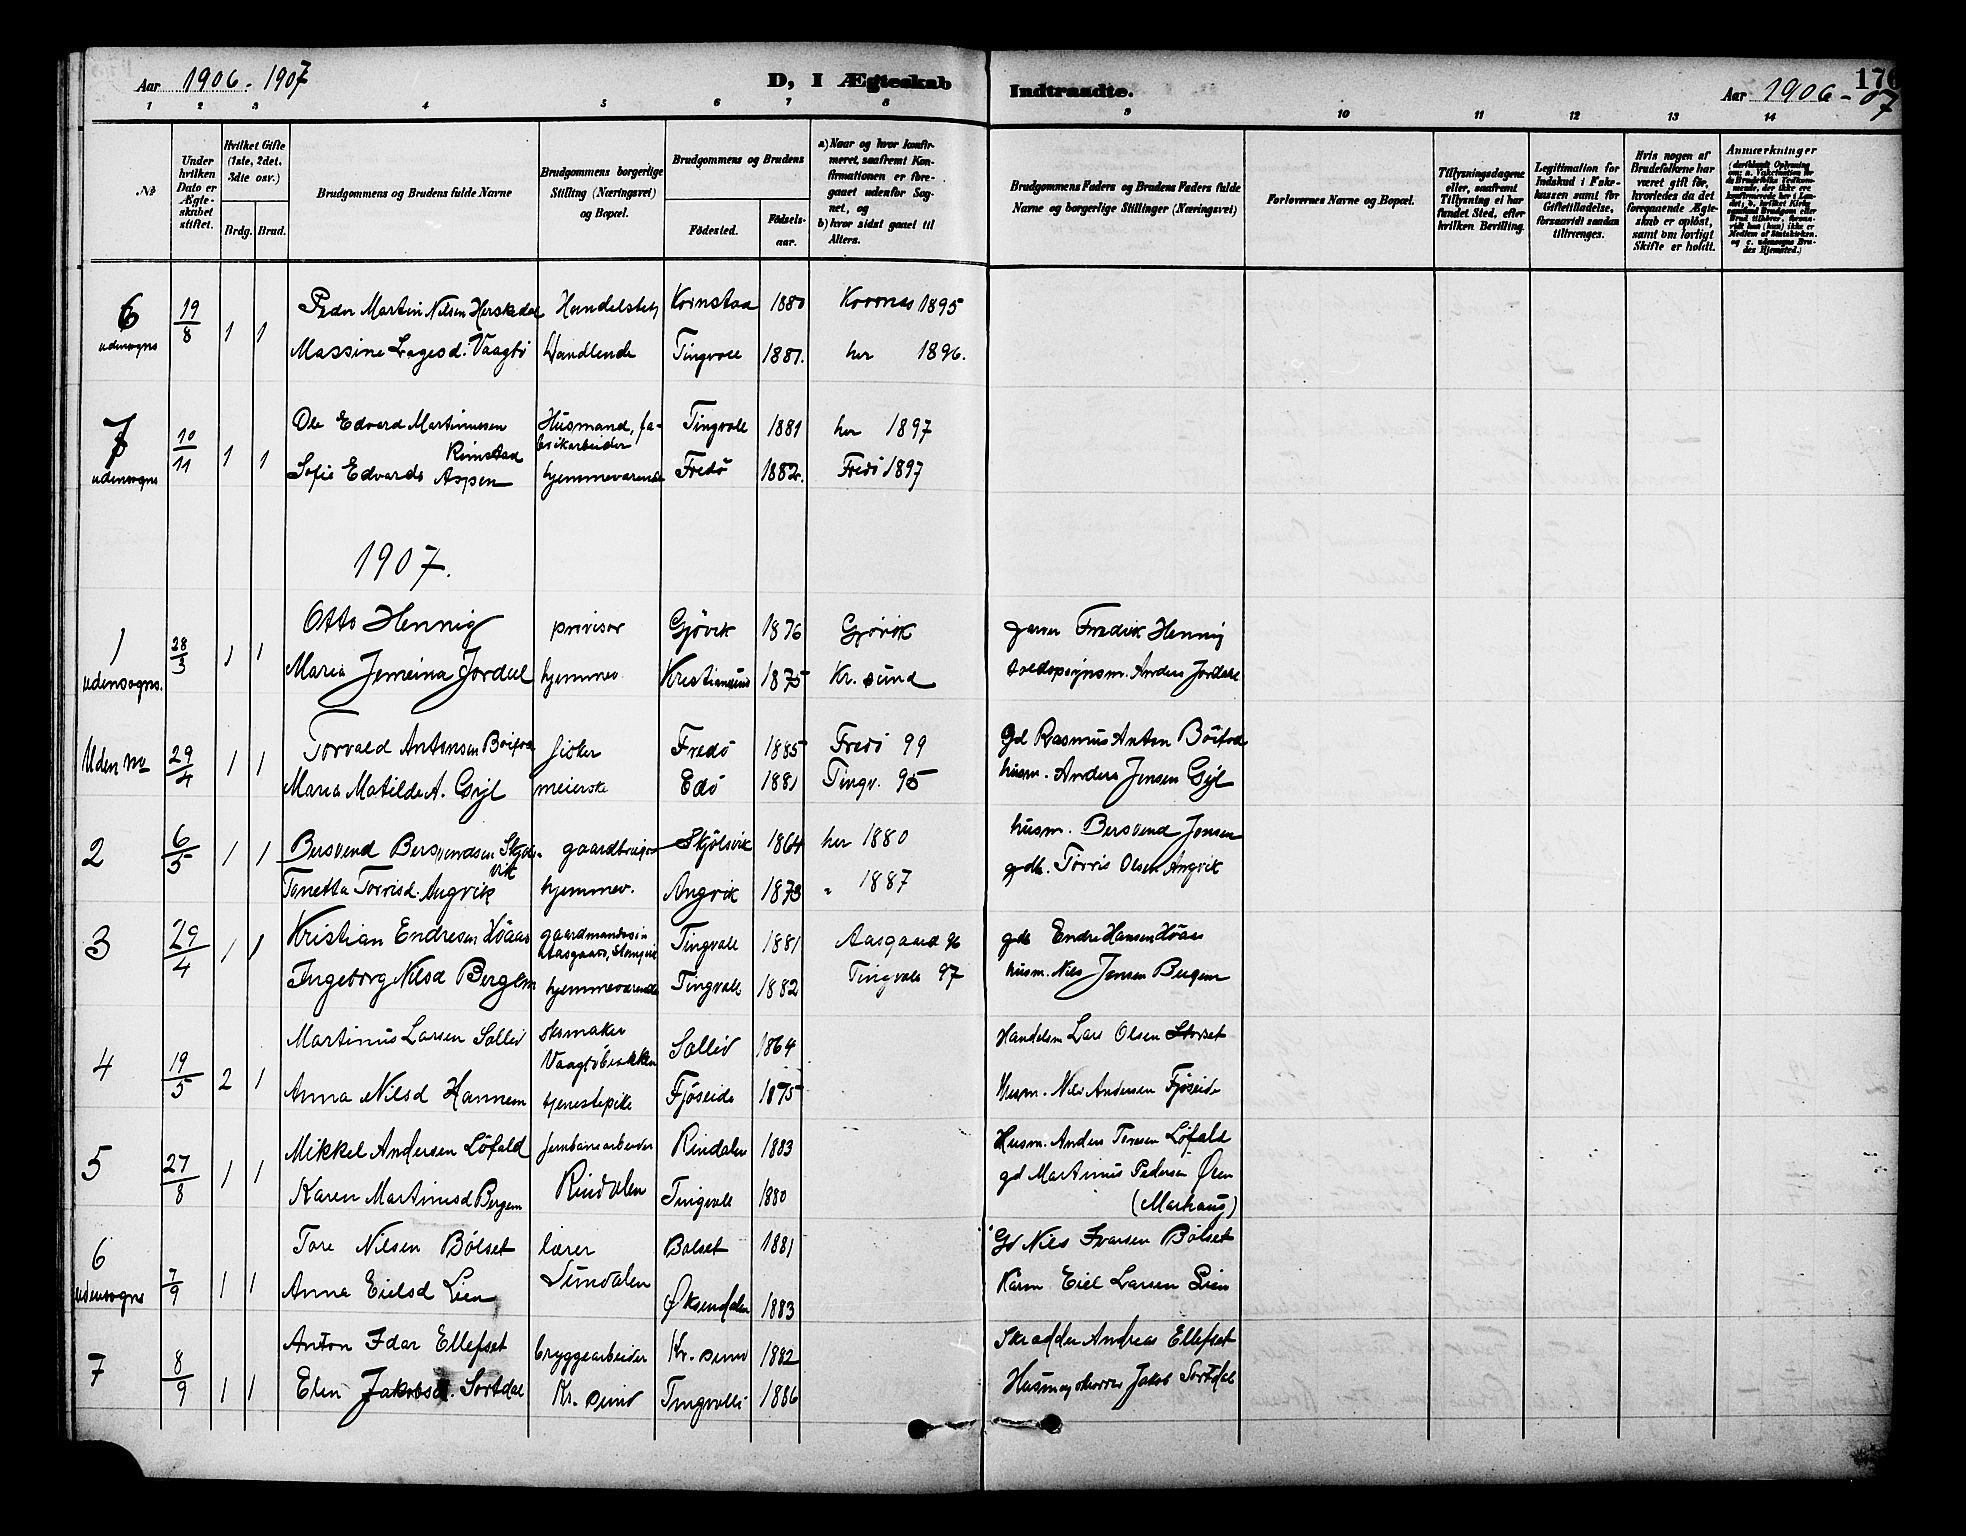 Aar 1906-1907
D, I Ægteskab
Indtraadte.
Aar 1906-07
176
1 2 3 4 5 6 7 8 9 10 11 12 13 14
No
Under hvilken Dato er Ægteskabet stiftet.
Hvilket Gifte (1ste, 2det, 3die osv.)
Brdg. Brud.
Brudgommens og Brudens fulde Navne
Brudgommens borgerlige Stilling (Næringsvei) og Bopæl.
Brudgommens og Brudens
Fødested.
Fødselsaar.
a) Naar og hvor konfirmeret, saafremt Konfirmationen er foregaaet udenfor Sognet, og
b) hvor sidst gaaet til Alters.
Brudgommens Faders og Brudens Faders fulde Navne og borgerlige Stillinger (Næringsvei)
Forlovernes Navne og Bopæl.
Tillysningsdagene eller, saafremt Tillysning ei har fundet Sted, efter hvilken Bevilling.
Legitimation for Indskud i Enkekassen samt for Giftetilladelse, forsaavidt saadan tiltrænges.
Hvis nogen af Brudefolkene har været gift før, hvorledes da det foregaaende Ægteskab er opløst, samt om lovligt Skifte er holdt.
Anmærkninger
6 19/8 1 1 Peder Martin Nilsen Kornstad 1880 1895
udensogns Massine Lagesd. Vaagbø Handlende Tingvoll 1881. her 1896.
7 10/11 1 1 Ole Edvard Martinussen Rimstad Husmand, fabrikarbeider Tingvoll 1881 her 1897
udensogns Sofie Edvards Aspen hjemmeværende Fredø 1882. Fredø 1897
1907.
1 28/3 1 1 Otto Hennig provisor Gjøvik 1876 Gjøvik Fredrik Hennig
udensogns. Maria Jemeina Jordal hjemmev Kristiansund 1875 Kr. sund Anders Jordal
Uden no 29/4 1 1 Torvald Antonsen fisker Fredø 1885 Fredø 99 Gd Rasmus Anton
Maria Matilde A. Gyl meierske Edø 1881 Tingv. 95 husm. Anders Jensen Gyl
2 6/5 1 1 Bersvend Bersvendsen Skjølsvik gaardbruger Skjølsvik 1864 her 1880 husm. Bersvend Jonsen
Tonetta Torrisd. Angvik hjemmev. Angvik 1873 " 1887 gdb. Torris Olsen Angvik
3 29/4 1 1 Kristian Endresen Høaas gaardmandssøn Aasgaard, Tingvoll 1881 Aasgaard 96 gdb Endre Hansen Høaas
Ingeborg Nilsd Bergem hjemmeværende Tingvoll 1882 Tingvoll 97 husm. Nils Jensen Bergem
4 19/5 2 1 Martinus Larsen Sollid skomaker Sollid 1864 Handelsm Lars Olsen Storset
Anna Nilsd Hannem tjenestepike Fjøseide 1875 Husm. Nils Andersen Fjøseide
5 27/8 1 1 Mikkel Andersen Løfald jernbanearbeider Rindalen 1883 Husm. Anders Løfald
Karen Martinusd Bergem Rindalen Tingvoll 1880 gd Martinus Pedersen Øien
(Markaug)
6 7/9 1 1 Tore Nilsen Bølset lærer Bolset 1881 Gd Nils Ivarsen Bølset
udensogns Anna Eielsd Lien Sundalen Øksendalen 1883 Eiel Larsen Lien
7 8/9 1 1 Anton Idar Ellefset bryggearbeider Kr. sund 1882 Skrædder Andreas Ellefset
Elen Jakobsd. Sortdal Kr. sund Tingvoll 1886 Jakob Sortdal